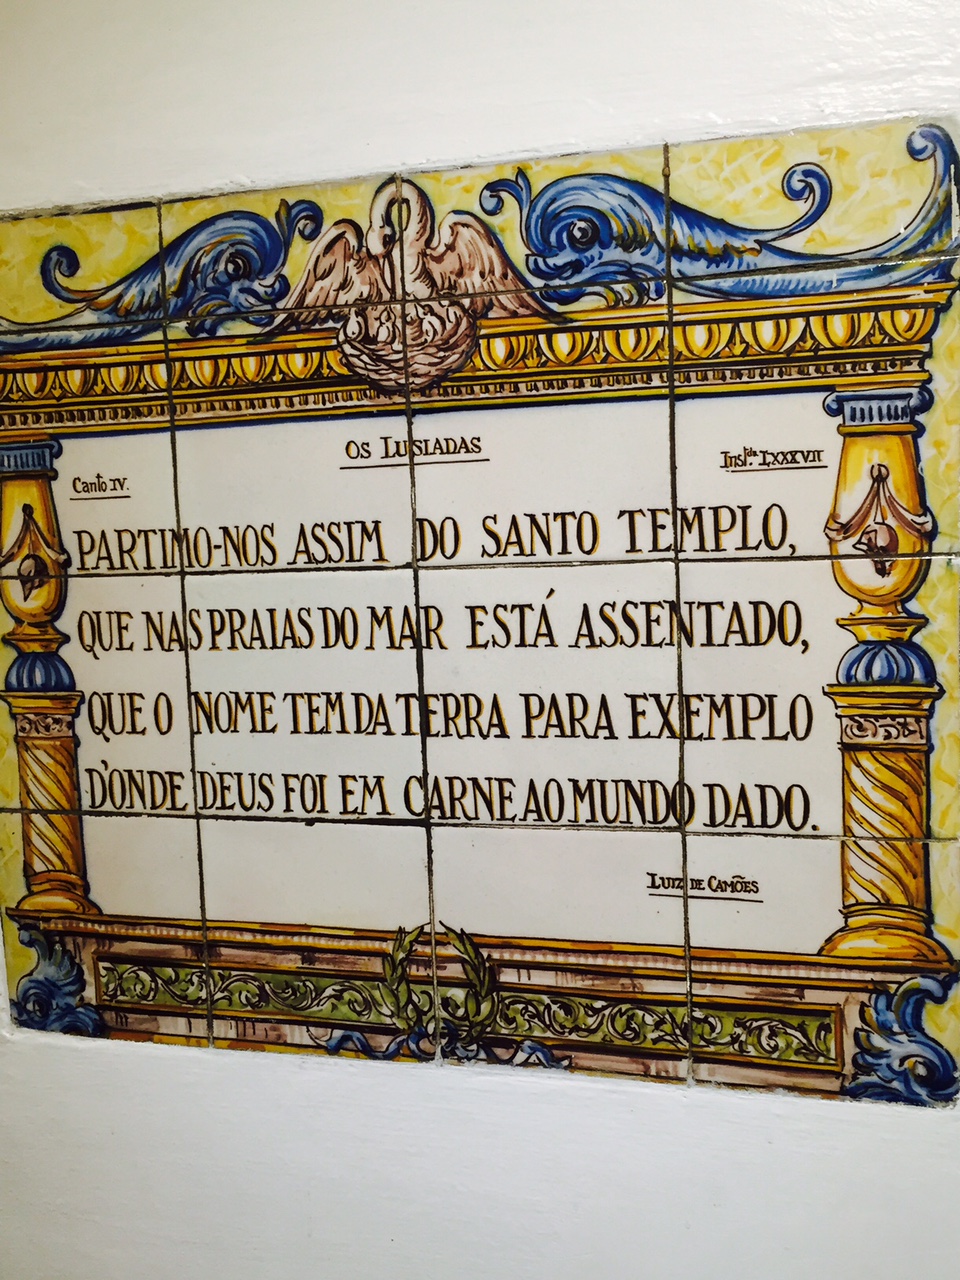 Os Lusiadas
Canto IV.
Inst.da. LXXXVII
PARTIMO-NOS ASSIM DO SANTO TEMPLO,
QUE NAS PRAIAS DO MAR ESTÁ ASSENTADO,
QUE O NOME TEM DA TERRA PARA EXEMPLO
D'ONDE DEUS FOI EM CARNE AO MUNDO DADO.
LUIZ DE CAMÕES